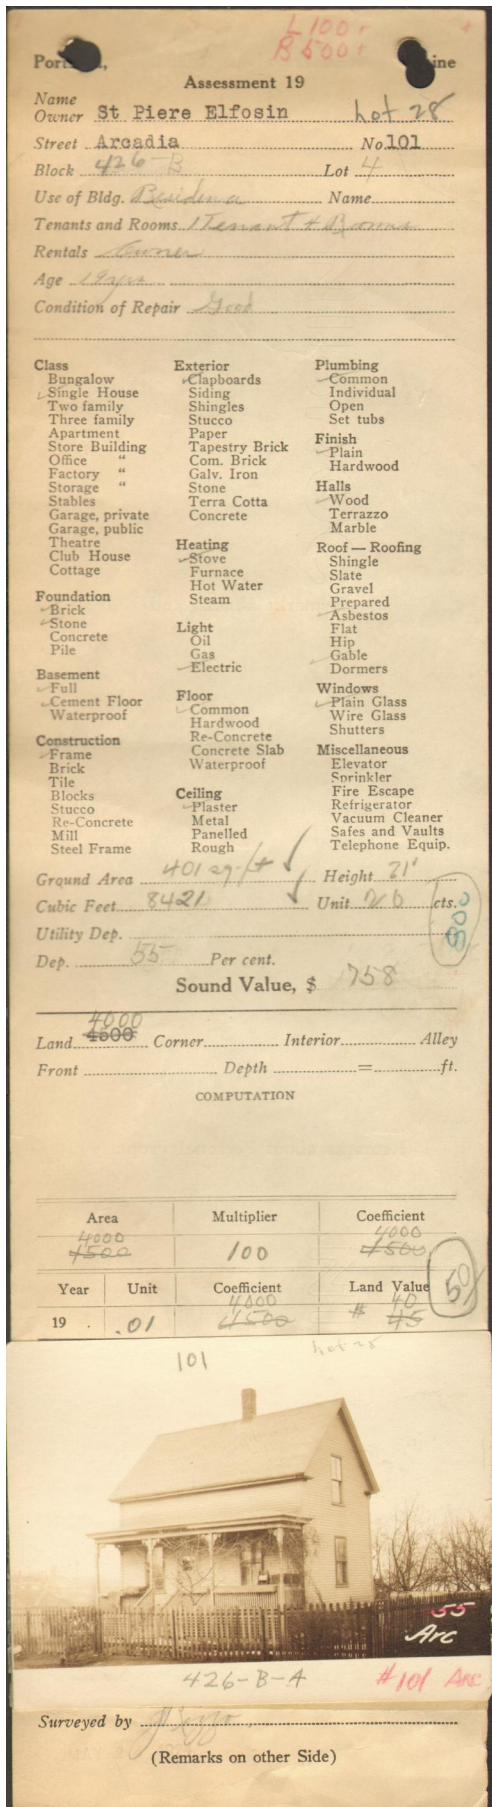 L 100
B 500
Assessment 19
Name
Owner St Piere Elfosin Lot 28
Street Arcadia No. 101
Block 426-B Lot 4
Use of Bldg. Residence Name
Tenants and Rooms 1 Tenant 4 Rooms
Rentals Owner
Age 19 yrs
Condition of Repair Good
Class
Bungalow
Single House
Two family
Three family
Apartment
Store Building
Office "
Factory "
Storage "
Stables
Garage, private
Garage, public
Theatre
Club House
Cottage
Foundation
Brick
Stone
Concrete
Pile
Basement
Full
Cement Floor
Waterproof
Construction
Frame
Brick
Tile
Blocks
Stucco
Re-Concrete
Mill
Steel Frame
Exterior
Clapboards
Siding
Shingles
Stucco
Paper
Tapestry Brick
Com. Brick
Galv. Iron
Stone
Terra Cotta
Concrete
Heating
Stove
Furnace
Hot Water
Steam
Light
Oil
Gas
Electric
Floor
Common
Hardwood
Re-Concrete
Concrete Slab
Waterproof
Ceiling
Plaster
Metal
Panelled
Rough
Plumbing
Common
Individual
Open
Set tubs
Finish
Plain
Hardwood
Halls
Wood
Terrazzo
Marble
Roof — Roofing
Shingle
Slate
Gravel
Prepared
Asbestos
Flat
Hip
Gable
Dormers
Windows
Plain Glass
Wire Glass
Shutters
Miscellaneous
Elevator
Sprinkler
Fire Escape
Refrigerator
Vacuum Cleaner
Safes and Vaults
Telephone Equip.
Ground Area 401 sq. ft Height 21'
Cubic Feet 8421 Unit 20 cts.
800
Utility Dep.
Dep. 55 Per cent.
Sound Value, $ 758
4000
Land 4500 Corner Interior Alley
Front Depth = ft.
COMPUTATION
Area Multiplier Coefficient
4000 4000
4500 100 4500
50
Year Unit Coefficient Land Value
4000 40
19 . .01 4500 $ 45
101 Lot 28
55
Arc
426-B-A #101 Arc
Surveyed by
(Remarks on other Side)